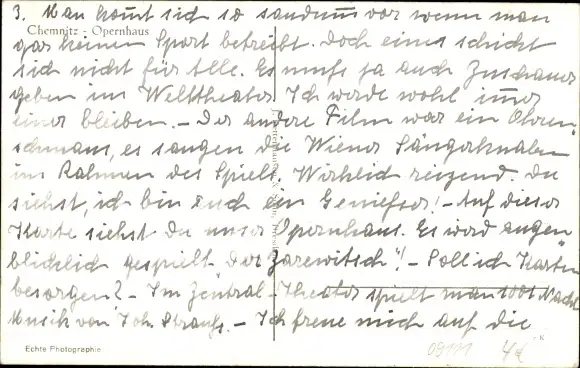 3. Man kommt sich so saudumm vor wenn man
Chemnitz - Opernhaus
gar keinen Sport betreibt. Doch eines schickt
sich nicht für Alle. Es muß ja auch Zuschauer
geben im Welttheater. Ich werde wohl immer
einer bleiben. – Der andere Film war ein Ohren-
schmaus, es sangen die Wiener Sängerknaben
im Rahmen des Spiels. Wirklich reizend. Du
siehst, ich bin auch ein Genießer! – Auf dieser
Karte siehst du unser Opernhaus. Es wird augen-
blicklich gespielt „Der Zarewitsch"! – Soll ich Karten
besorgen? – Im Zentral-Theater spielt man 1001 Nacht
Musik von Joh. Strauß. – Ich freue mich auf die
Echte Photographie
K
09111 4€